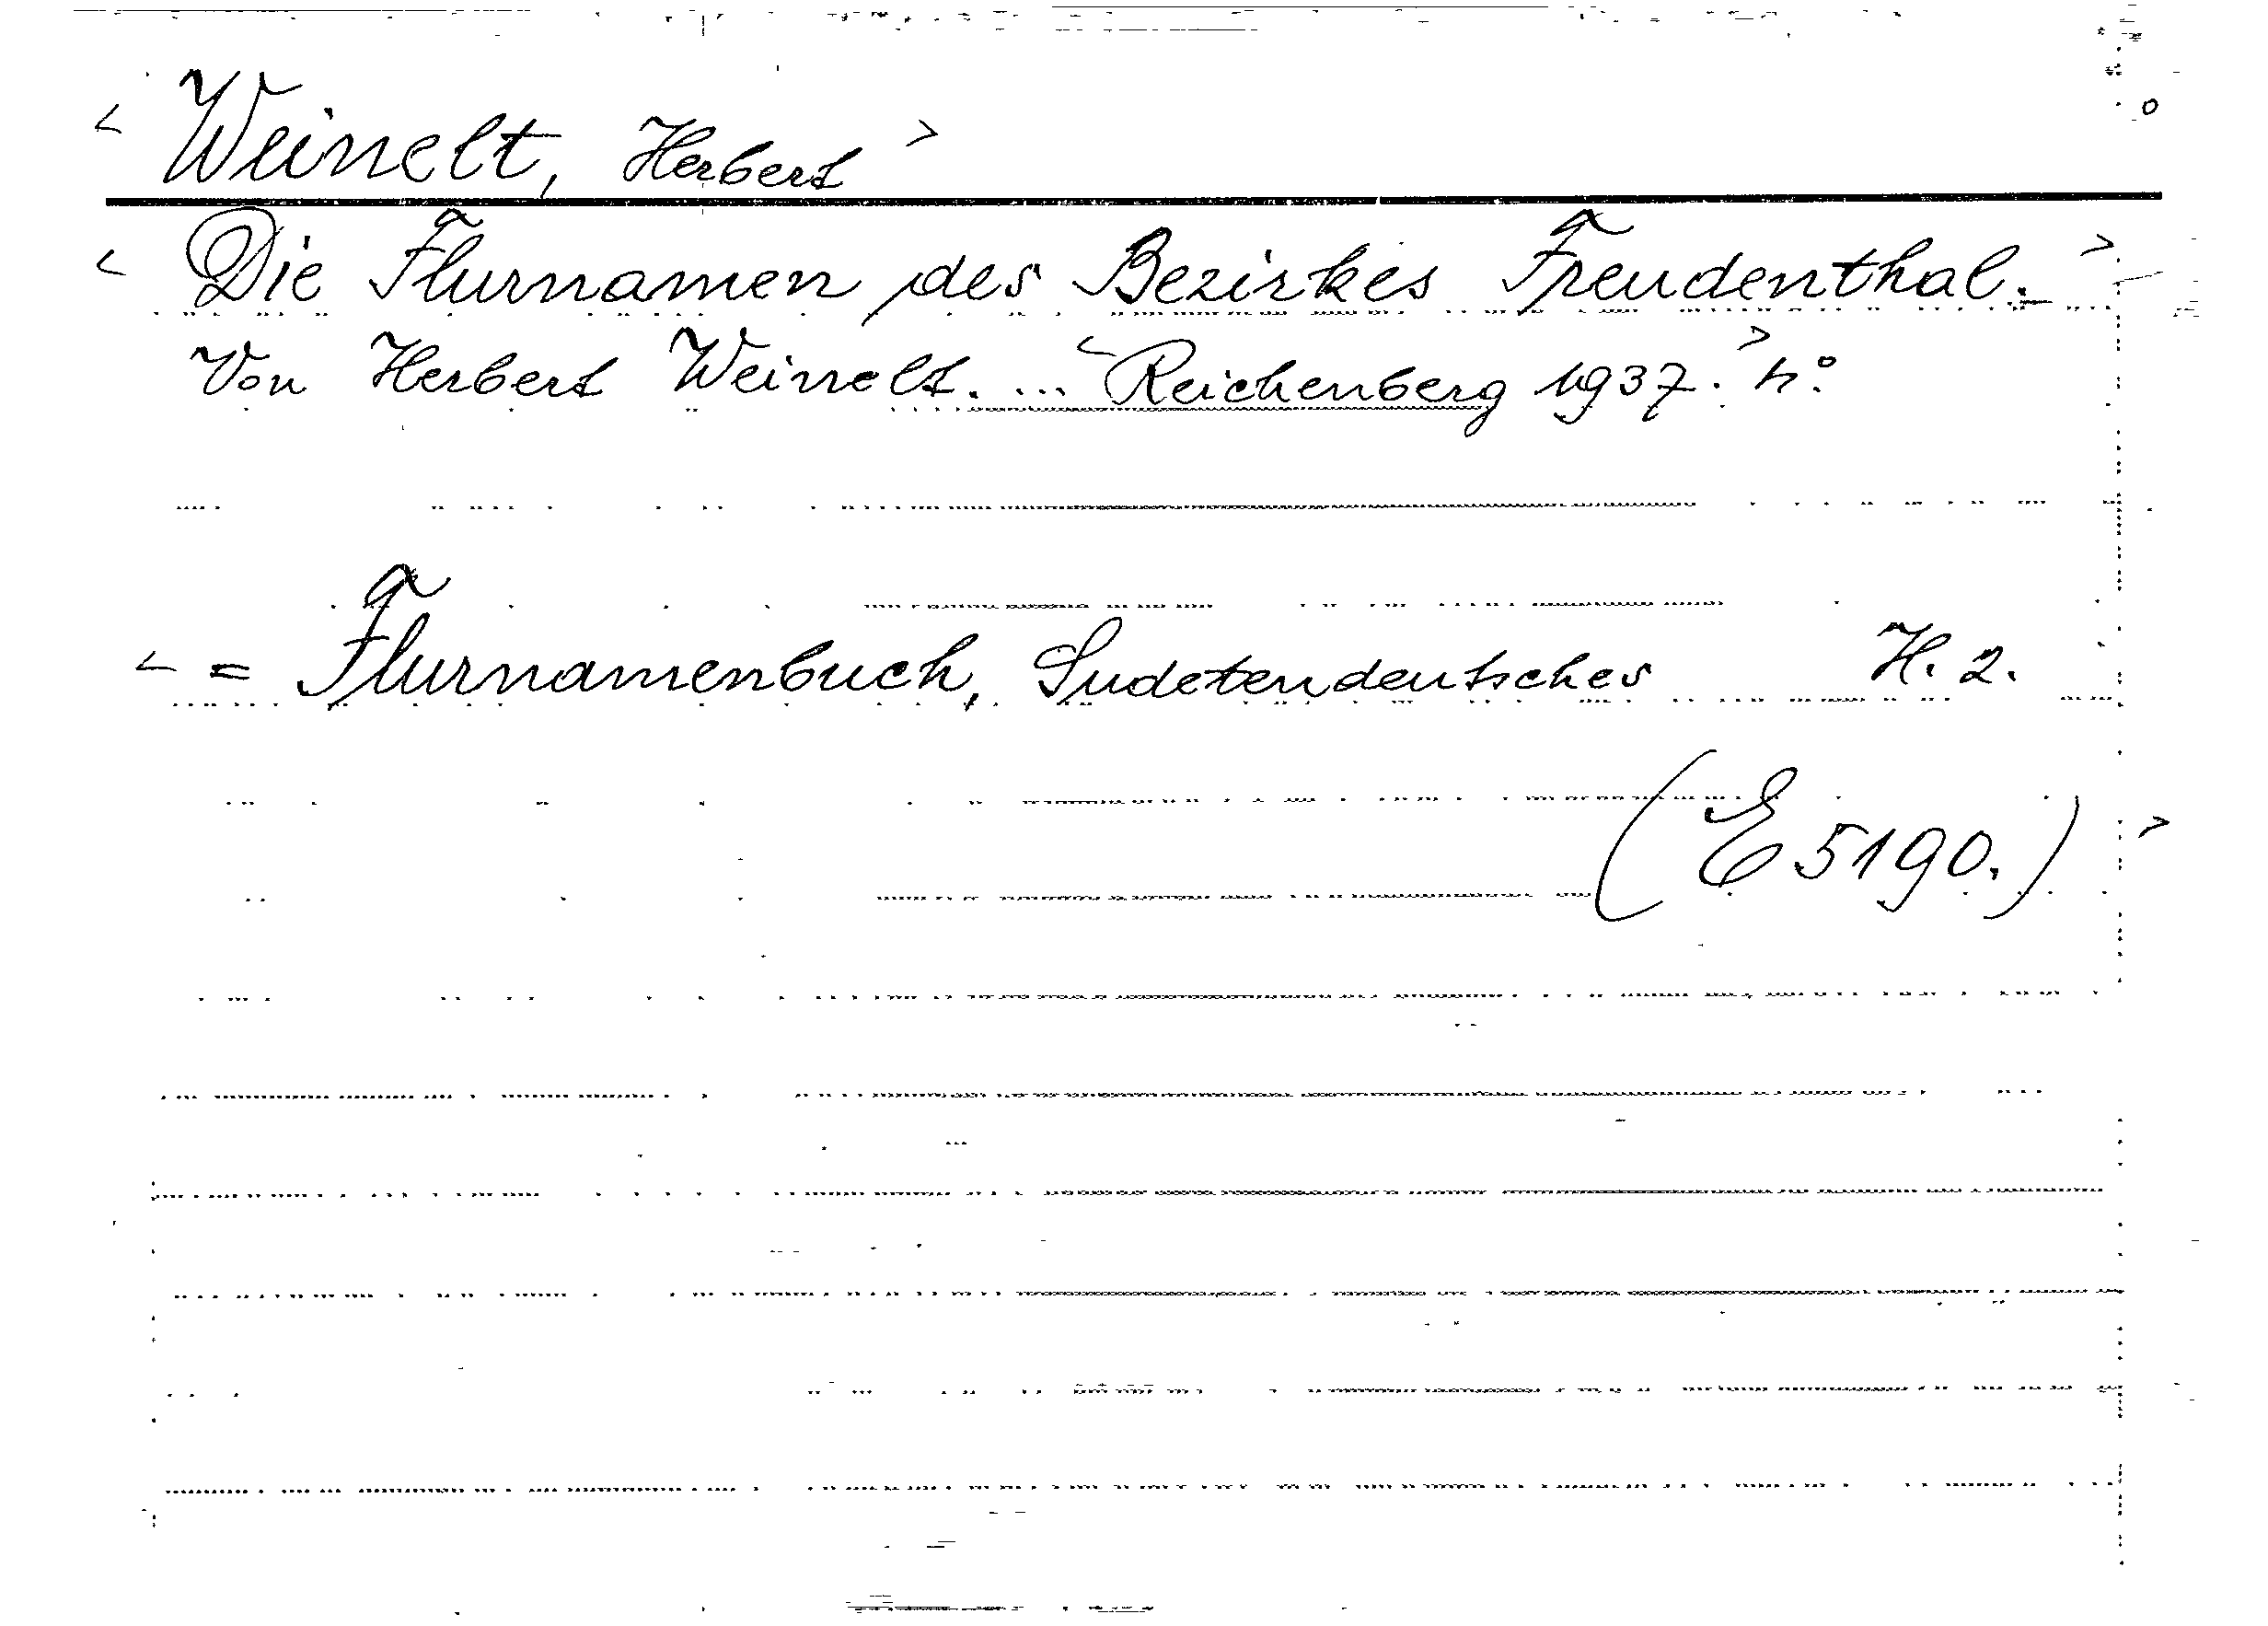 < Weinelt, Herbert >
< Die Flurnamen des Bezirkes Freudenthal. >
Von Herbert Weinelt. ... < Reichenberg 1937. > 4°.
< = Flurnamenbuch, Sudetendeutsches H. 2.
(E 5190.) >